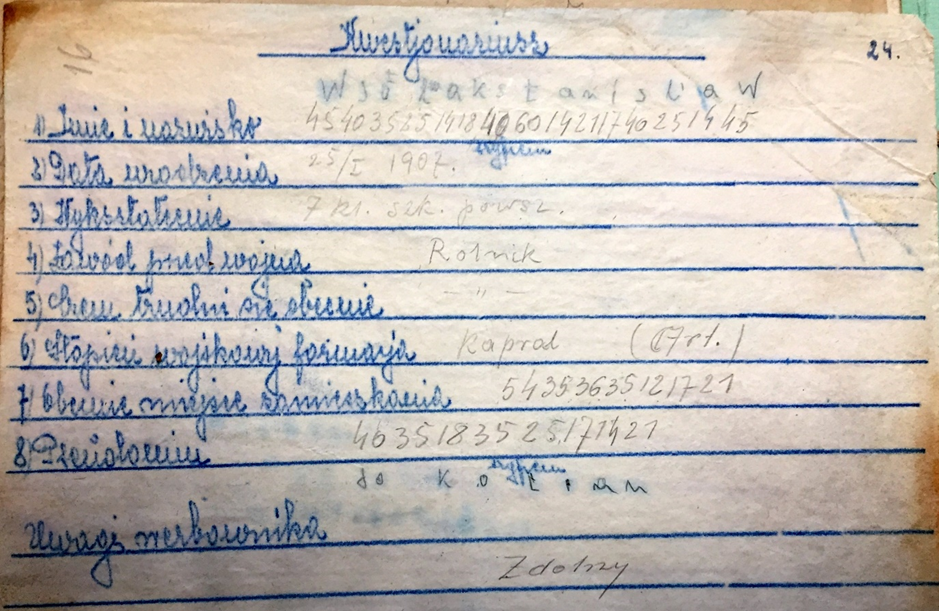 Kwestjonariusz
16
24.
W s o ł a k s t a n i s ł a w
1) Imię i nazwisko 454035251418406014211740251445
szyfrem
2) Data urodzenia 25/I 1907.
3) Wykształcenie 7 kl. szk. powsz.
4) Zawód przed wojną Rolnik
5) Czem trudni się obecnie — " —
6) Stopień wojskowy formacja Kapral (Art.)
7) Obecnie miejsce zamieszkania 54353635121721
8) Pseudonim 4635183525171421
szyfrem
k o ł i a n
Uwagi werbownika
Zdolny